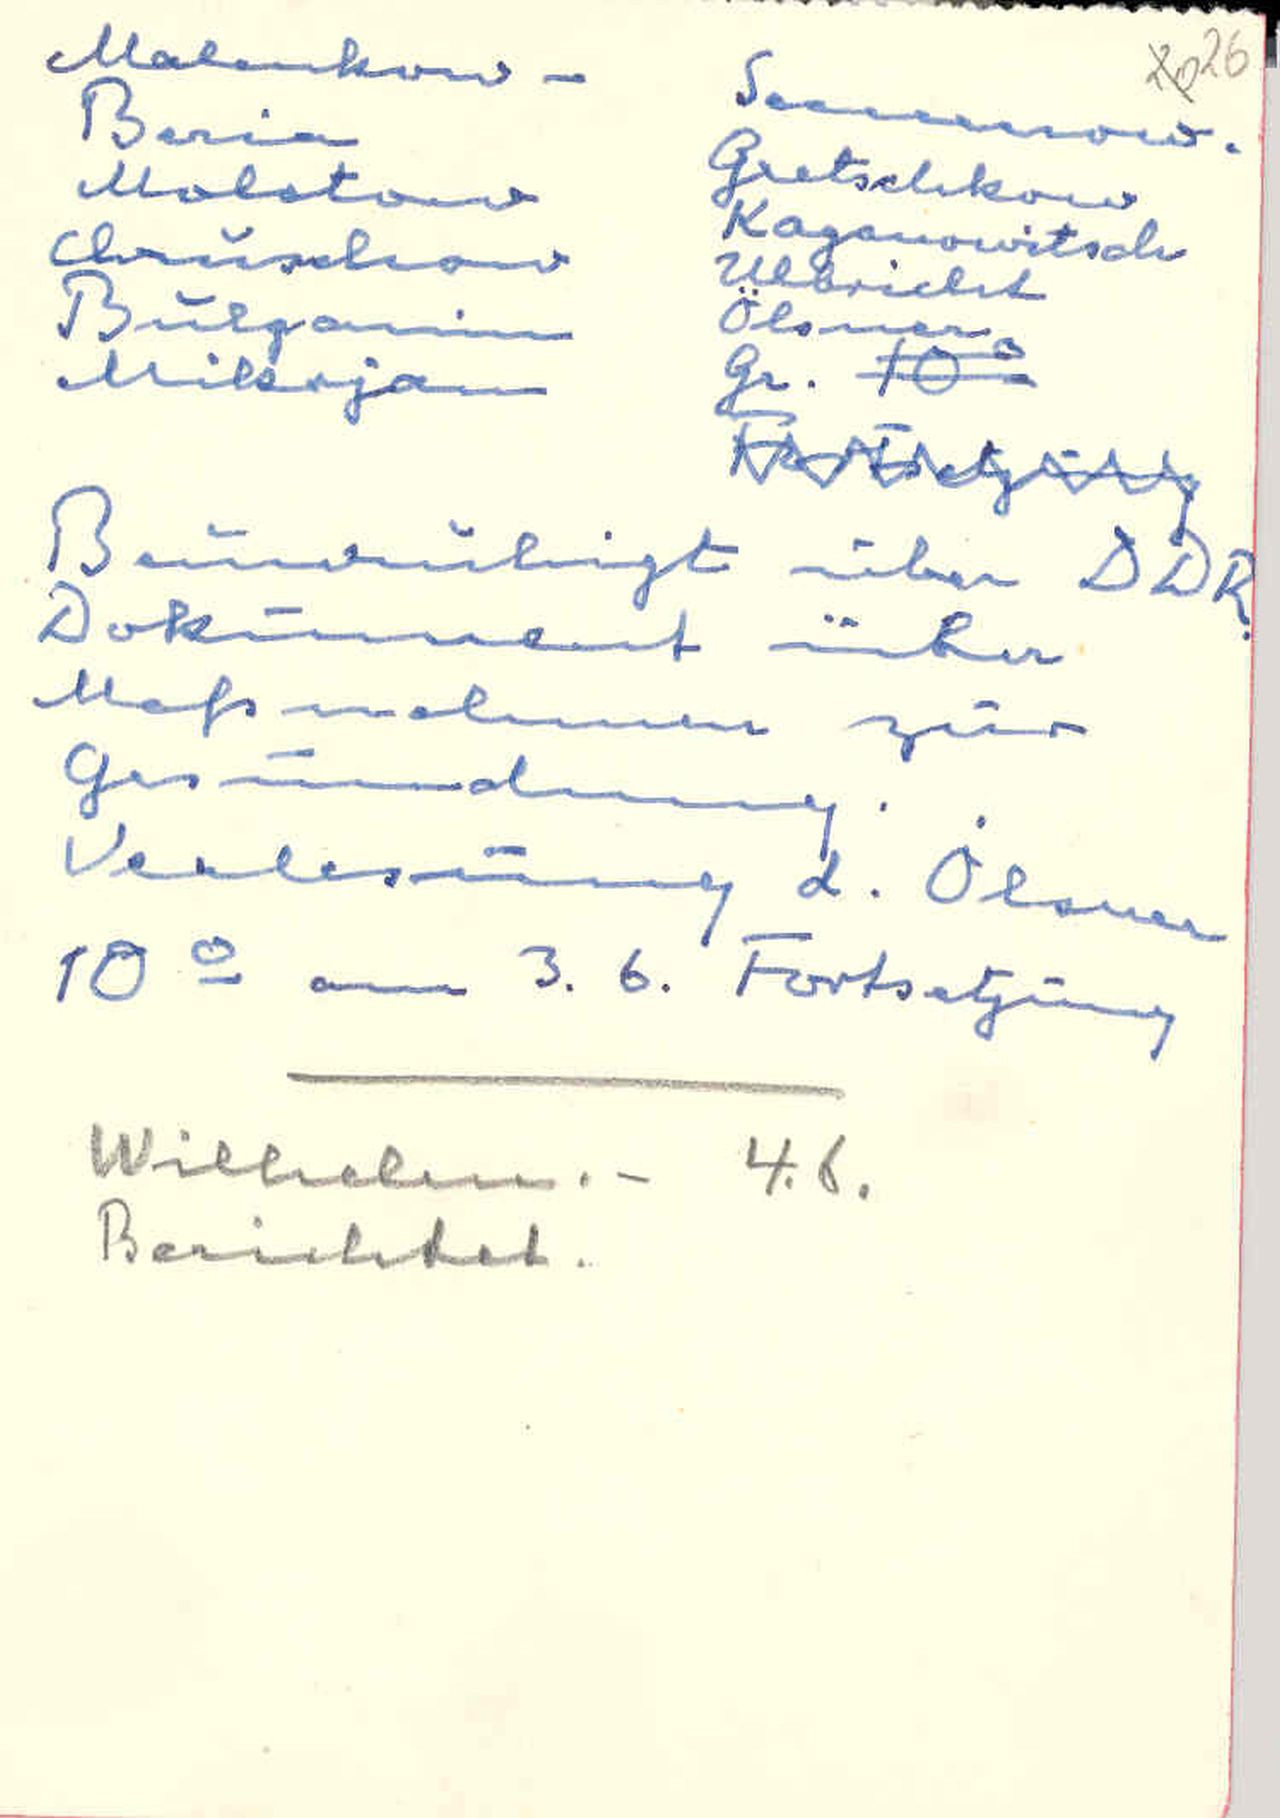 26
Malenkow -
Beria
Molotow
Chruschow
Bulganin
Mikojan
Semenow.
Gretschkow
Kaganowitsch
Ulbricht
Ölsner
Gr. 10°
Fortsetzung
Beunruhigt über DDR.
Dokument über
Maßnahmen zur
Gesundung.
Verlesung d. Ölsner
10° am 3. 6. Fortsetzung
Wilhelm. - 4.6.
Berichtet.